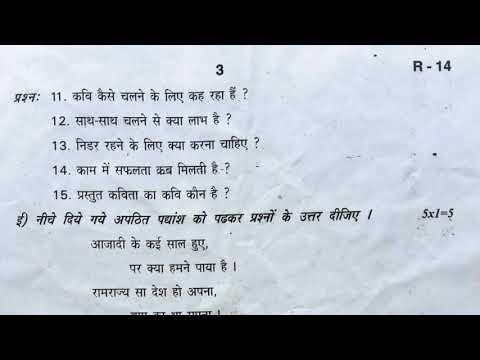 3
R - 14
प्रश्नः 11. कवि कैसे चलने के लिए कह रहा हैं ?
12. साथ-साथ चलने से क्या लाभ है ?
13. निडर रहने के लिए क्या करना चाहिए ?
14. काम में सफलता कब मिलती है ?
15. प्रस्तुत कविता का कवि कौन है ?
ई) नीचे दिये गये अपठित पद्यांश को पढकर प्रश्नों के उत्तर दीजिए । 5x1=5
आजादी के कई साल हुए,
पर क्या हमने पाया है ।
रामराज्य सा देश हो अपना,